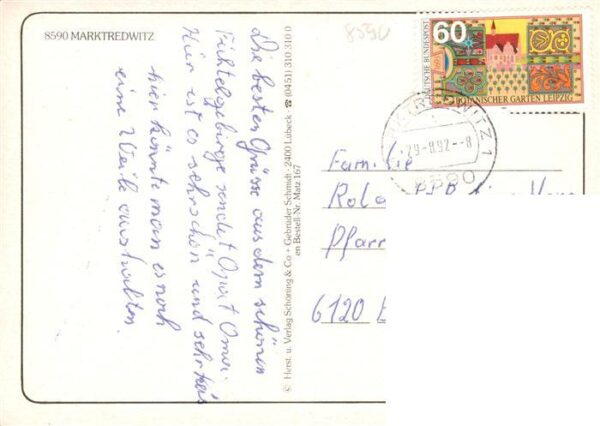 8590 MARKTREDWITZ
8590
60
DEUTSCHE BUNDESPOST
BOTANISCHER GARTEN LEIPZIG
MARKTREDWITZ 1
29-8.92--8
8590
Die besten Grüsse aus dem schönen
Fichtelgebirge sendet Opa + Oma.
Hier ist es sehr schön und sehr heis
hier könnte man es noch
eine Weile aushalten.
© Herst. u. Verlag Schöning & Co + Gebrüder Schmidt · 2400 Lübeck ☎ (0451) 310 310 0
en Bestell-Nr. Matz 167
Familie
Rola
Pfarr
6120